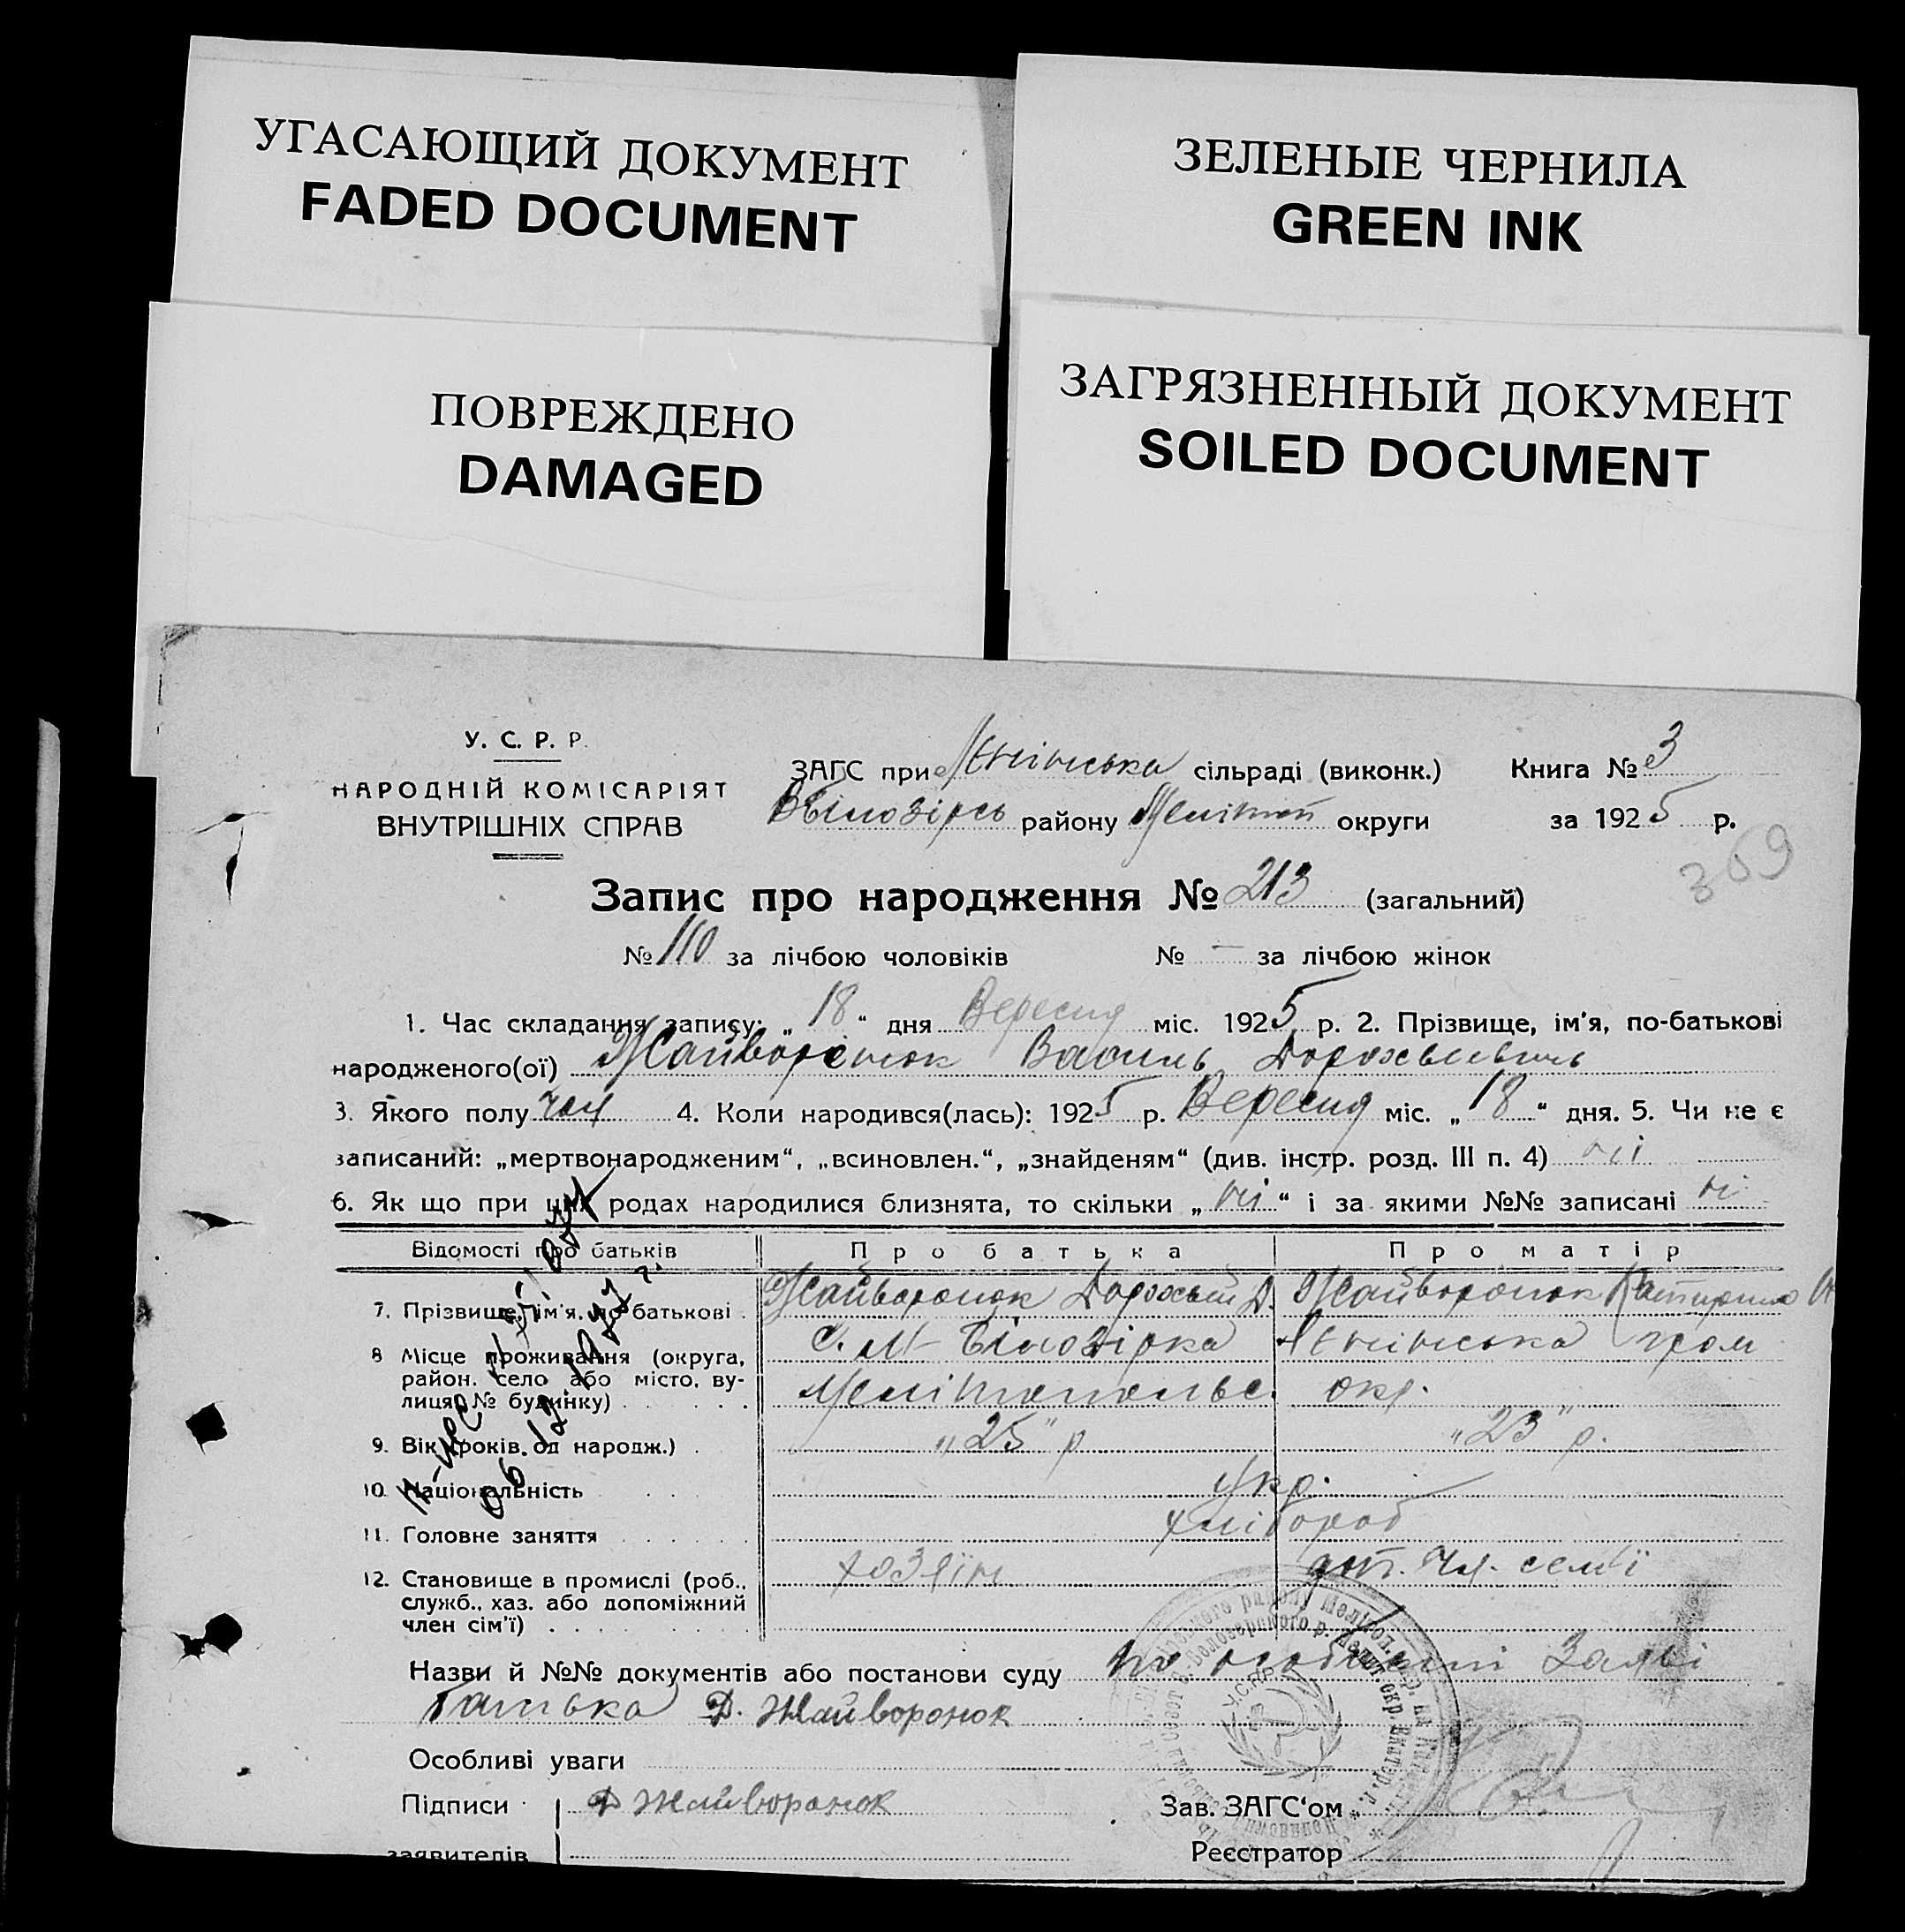 УГАСАЮЩИЙ ДОКУМЕНТ
FADED DOCUMENT
ЗЕЛЕНЫЕ ЧЕРНИЛА
GREEN INK
ПОВРЕЖДЕНО
DAMAGED
ЗАГРЯЗНЕННЫЙ ДОКУМЕНТ
SOILED DOCUMENT
У. С. Р. Р.
НАРОДНІЙ КОМІСАРІЯТ
ВНУТРІШНІХ СПРАВ
ЗАГС при Ленінська сільраді (виконк.) Книга № 3
району Меліт округи за 1925 р.
369
Запис про народження № 213 (загальний)
№ 110 за лічбою чоловіків № — за лічбою жінок
1. Час складання запису: „18“ дня Вересня міс. 1925 р. 2. Прізвище, ім'я, по-батькові
народженого(ої) Жайворонок Василь
3. Якого полу чол 4. Коли народився(лась): 1925 р. Вересня міс. „18“ дня. 5. Чи не є
записаний: „мертвонародженим“, „всиновлен.“, „знайденям“ (див. інстр. розд. III п. 4) ні
6. Як що при цих родах народилися близнята, то скільки „ні“ і за якими №№ записані ні
Відомості про батьків Про батька Про матір
7. Прізвище, ім'я, по-батькові Жайворонок Дорохвей Д. Жайворонок
8 Місце проживання (округа, район, село або місто, вулиця, № будинку) С. М-Білозірка Ленінська гром
Мелітопольс. окр.
9. Вік (років од народж.) „25“ р „23“ р.
10. Національність Укр.
11. Головне заняття хлібороб
12. Становище в промислі (роб., служб., хаз. або допоміжний член сім'ї) хозяїн доп. чл. семї
Назви й №№ документів або постанови суду по особистій Заяві
Батька Д. Жайворонок
Особливі уваги
Підписи Д Жайворонок Зав. ЗАГС'ом
заявителів Реєстратор